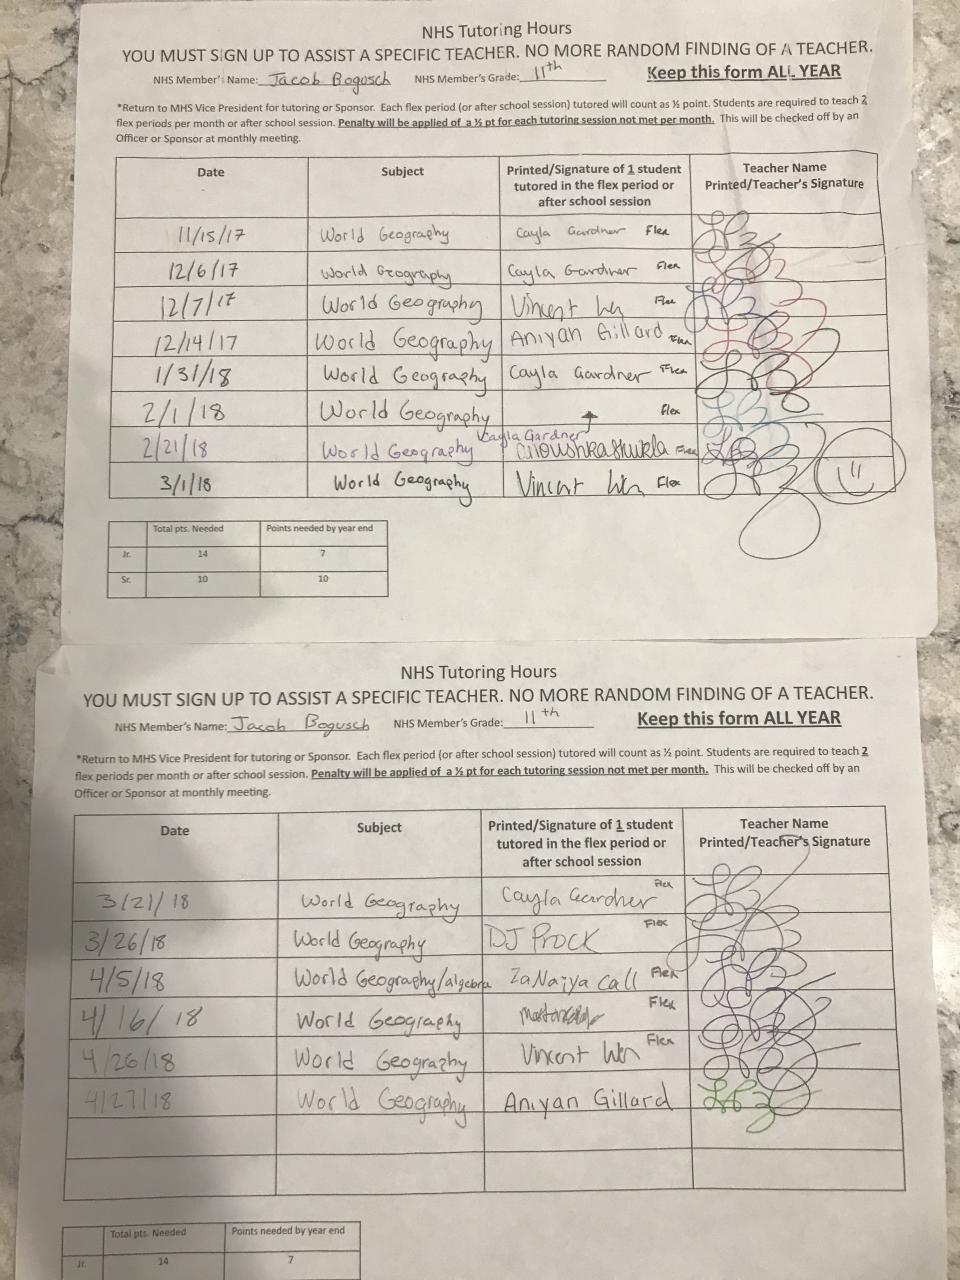 NHS Tutoring Hours
YOU MUST SIGN UP TO ASSIST A SPECIFIC TEACHER. NO MORE RANDOM FINDING OF A TEACHER.
NHS Member's Name: Jacob Bogusch NHS Member's Grade: 11th Keep this form ALL YEAR
*Return to MHS Vice President for tutoring or Sponsor. Each flex period (or after school session) tutored will count as ½ point. Students are required to teach 2
flex periods per month or after school session. Penalty will be applied of a ½ pt for each tutoring session not met per month. This will be checked off by an
Officer or Sponsor at monthly meeting.
Date Subject Printed/Signature of 1 student tutored in the flex period or after school session Teacher Name Printed/Teacher's Signature
11/15/17 World Geography Cayla Gardner Flex
12/6/17 World Geography Cayla Gardner Flex
12/7/17 World Geography Vincent Flex
12/14/17 World Geography Aniyan Gillard Flex
1/31/18 World Geography Cayla Gardner Flex
2/1/18 World Geography flex
Cayla Gardner
2/21/18 World Geography Flex
3/1/18 World Geography Vincent Flex
Total pts. Needed Points needed by year end
Jr. 14 7
Sr. 10 10
NHS Tutoring Hours
YOU MUST SIGN UP TO ASSIST A SPECIFIC TEACHER. NO MORE RANDOM FINDING OF A TEACHER.
NHS Member's Name: Jacob Bogusch NHS Member's Grade: 11th Keep this form ALL YEAR
*Return to MHS Vice President for tutoring or Sponsor. Each flex period (or after school session) tutored will count as ½ point. Students are required to teach 2
flex periods per month or after school session. Penalty will be applied of a ½ pt for each tutoring session not met per month. This will be checked off by an
Officer or Sponsor at monthly meeting.
Date Subject Printed/Signature of 1 student tutored in the flex period or after school session Teacher Name Printed/Teacher's Signature
3/21/18 World Geography Cayla Gardner Flex
3/26/18 World Geography DJ Prock Flex
4/5/18 World Geography/algebra ZaNaiya Call Flex
4/16/18 World Geography Flex
4/26/18 World Geography Vincent Flex
4/27/18 World Geography Aniyan Gillard
Total pts. Needed Points needed by year end
Jr. 14 7